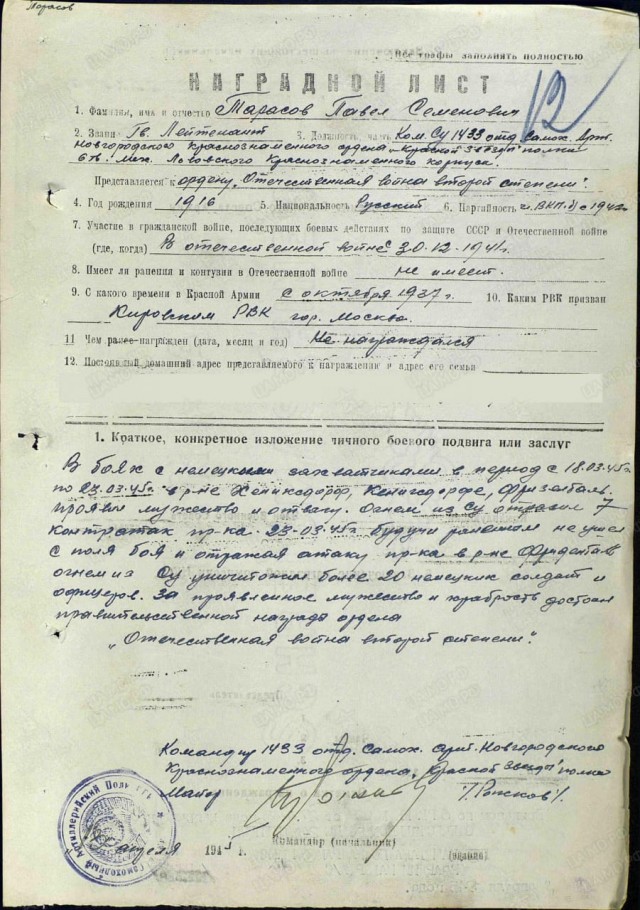 Тарасов
Все графы заполнять полностью
НАГРАДНОЙ ЛИСТ
12
1. Фамилия, имя и отчество Тарасов Павел Семенович
2. Звание Гв. Лейтенант 3. Должность, часть Ком. Су 1433 отд. Самох. Арт.
Новгородского Краснознаменного ордена „Красной Звезды" полка
6 гв. Мех. Львовского Краснознаменного корпуса.
Представляется к ордену „Отечественная война второй степени".
4. Год рождения 1916 5. Национальность Русский 6. Партийность ч. ВКП(б) с 1942
7. Участие в гражданской войне, последующих боевых действиях по защите СССР и Отечественной войне
(где, когда) В отечественной войне с 30.12.1941г.
8. Имеет ли ранения и контузии в Отечественной войне не имеет.
9. С какого времени в Красной Армии с октября 1937 г. 10. Каким РВК призван
Кировским РВК гор. Москва.
11 Чем ранее награжден (дата, месяц и год) Не награждался
12. Постоянный домашний адрес представляемого к награждению и адрес его семьи
1. Краткое, конкретное изложение личного боевого подвига или заслуг
В боях с немецкими захватчиками в период с 18.03.45г
по 23.03.45г. в р-не
проявил мужество и отвагу. Огнем из Су отразил 7
контратак пр-ка. 23-03-45г будучи раненым не ушел
с поля боя и отражая атаку пр-ка в р-не
огнем из Су уничтожил более 20 немецких солдат и
офицеров. За проявленное мужество и храбрость достоин
правительственной награды ордена
„Отечественная война второй степени".
Командир 1433 отд. Самох. Арт. Новгородского
Краснознаменного ордена „Красной Звезды" полка
Майор
апреля 1945 г. Командир (начальник)
(звание)
Самоходный Артиллерийский Полк